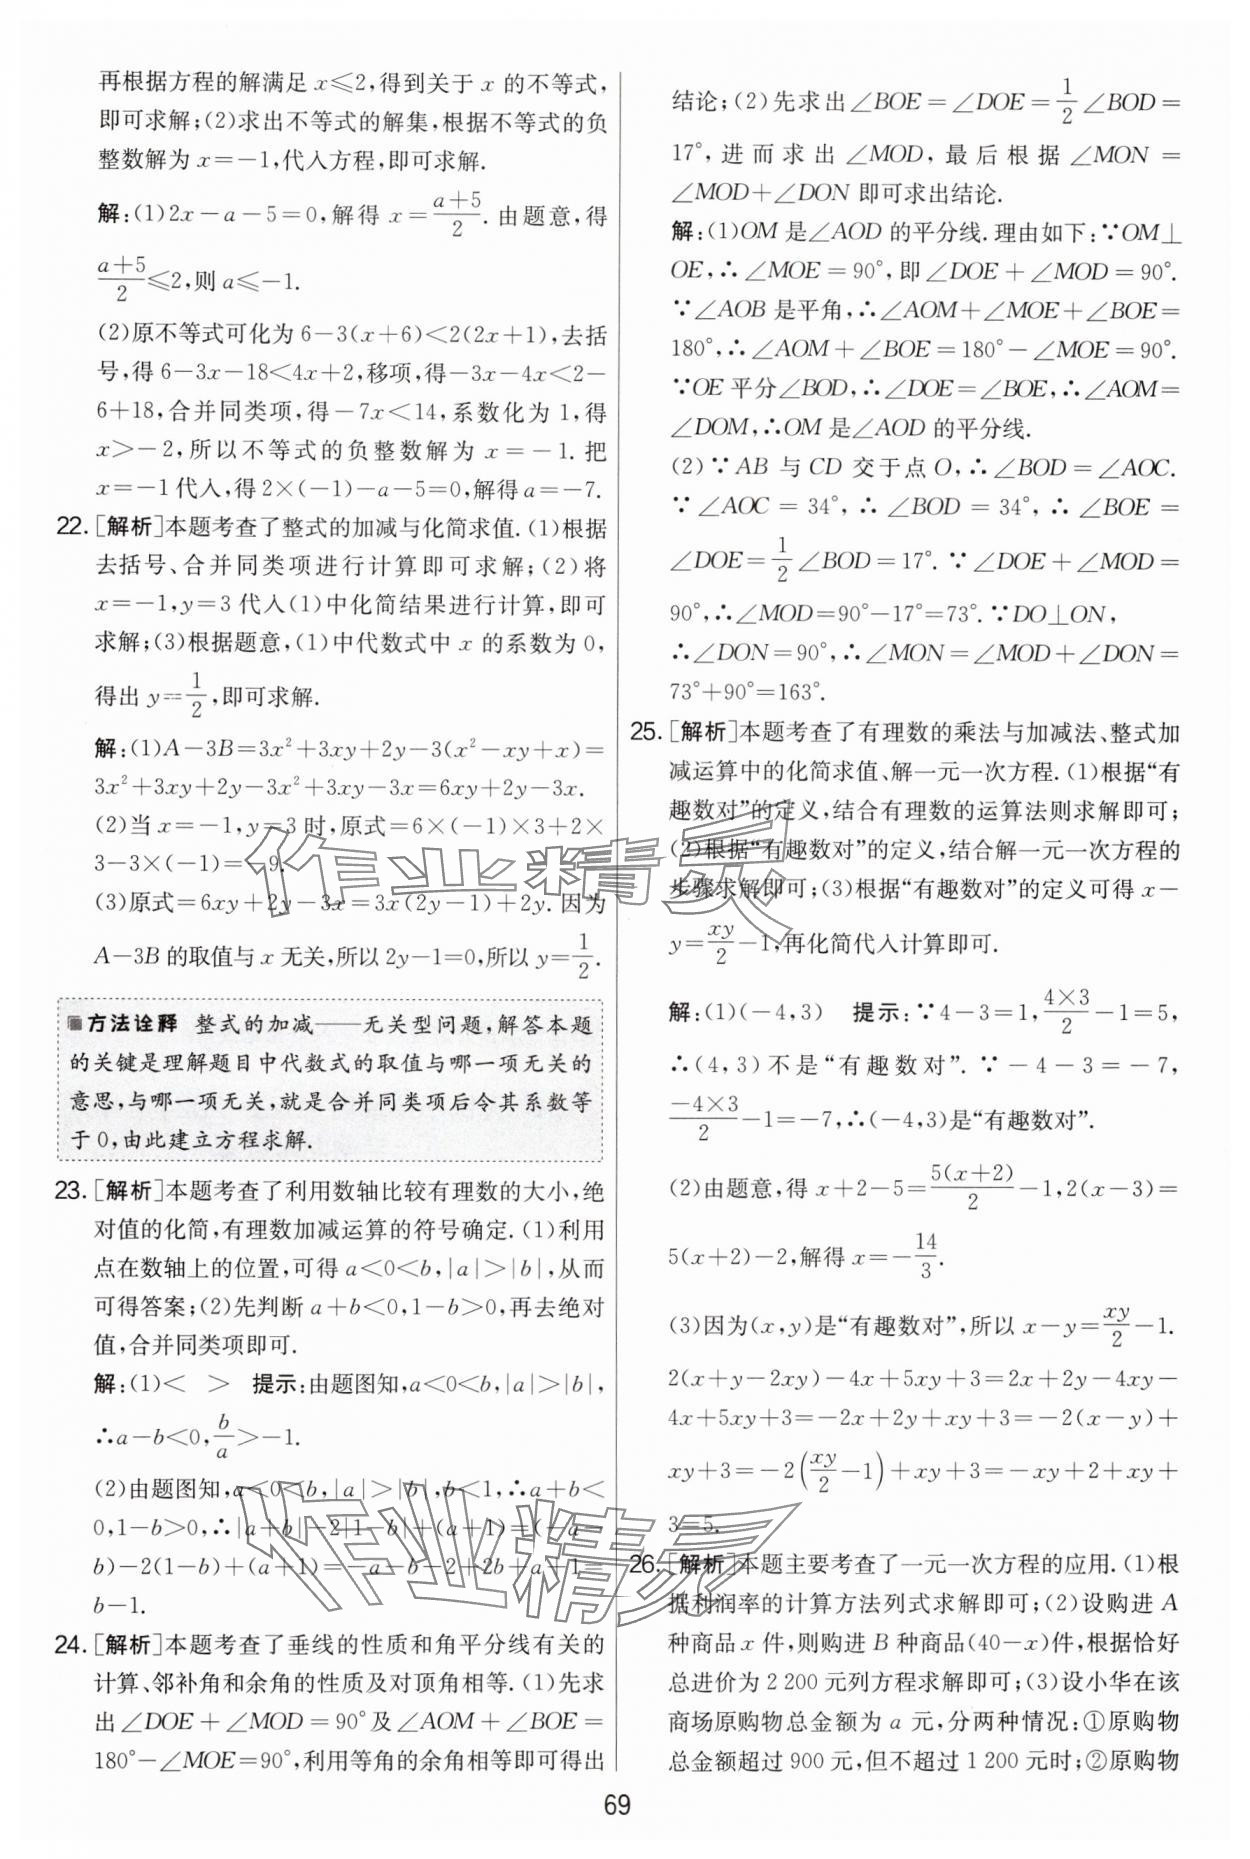 再根据方程的解满足 x≤2,得到关于 x 的不等式,
即可求解;(2)求出不等式的解集,根据不等式的负
整数解为 x=-1,代入方程,即可求解.
解:(1)2x-a-5=0,解得 x=\frac{a+5}{2}.由题意,得
\frac{a+5}{2}≤2,则 a≤-1.
(2)原不等式可化为 6-3(x+6)<2(2x+1),去括
号,得 6-3x-18<4x+2,移项,得-3x-4x<2-
6+18,合并同类项,得-7x<14,系数化为 1,得
x>-2,所以不等式的负整数解为 x=-1.把
x=-1代入,得 2×(-1)-a-5=0,解得 a=-7.
22.[解析]本题考查了整式的加减与化简求值.(1)根据
去括号、合并同类项进行计算即可求解;(2)将
x=-1,y=3 代入(1)中化简结果进行计算,即可
求解;(3)根据题意,(1)中代数式中 x 的系数为 0,
得出 y=\frac{1}{2},即可求解.
解:(1)A-3B=3x²+3xy+2y-3(x²-xy+x)=
3x²+3xy+2y-3x²+3xy-3x=6xy+2y-3x.
(2)当 x=-1,y=3 时,原式=6×(-1)×3+2×
3-3×(-1)=-9.
(3)原式=6xy+2y-3x=3x(2y-1)+2y.因为
A-3B 的取值与 x 无关,所以 2y-1=0,所以 y=\frac{1}{2}.
方法诠释 整式的加减——无关型问题,解答本题
的关键是理解题目中代数式的取值与哪一项无关的
意思,与哪一项无关,就是合并同类项后令其系数等
于 0,由此建立方程求解.
23.[解析]本题考查了利用数轴比较有理数的大小,绝
对值的化简,有理数加减运算的符号确定.(1)利用
点在数轴上的位置,可得 a<0<b,|a|>|b|,从而
可得答案;(2)先判断 a+b<0,1-b>0,再去绝对
值,合并同类项即可.
解:(1)< > 提示:由题图知,a<0<b,|a|>|b|,
∴a-b<0,\frac{b}{a}>-1.
(2)由题图知,a<0<b,|a|>|b|,b<1,∴a+b<
0,1-b>0,∴|a+b|-2|1-b|+(a+1)=(-a-
b)-2(1-b)+(a+1)=-a-b-2+2b+a+1=
b-1.
24.[解析]本题考查了垂线的性质和角平分线有关的
计算、邻补角和余角的性质及对顶角相等.(1)先求
出∠DOE+∠MOD=90°及∠AOM+∠BOE=
180°-∠MOE=90°,利用等角的余角相等即可得出
结论;(2)先求出∠BOE=∠DOE=\frac{1}{2}∠BOD=
17°,进而求出∠MOD,最后根据∠MON=
∠MOD+∠DON 即可求出结论.
解:(1)OM 是∠AOD 的平分线.理由如下:∵OM⊥
OE,∴∠MOE=90°,即∠DOE+∠MOD=90°.
∵∠AOB 是平角,∴∠AOM+∠MOE+∠BOE=
180°,∴∠AOM+∠BOE=180°-∠MOE=90°.
∵OE 平分∠BOD,∴∠DOE=∠BOE,∴∠AOM=
∠DOM,∴OM 是∠AOD 的平分线.
(2)∵AB 与 CD 交于点 O,∴∠BOD=∠AOC.
∵∠AOC=34°,∴∠BOD=34°,∴∠BOE=
∠DOE=\frac{1}{2}∠BOD=17°.∵∠DOE+∠MOD=
90°,∴∠MOD=90°-17°=73°.∵DO⊥ON,
∴∠DON=90°,∴∠MON=∠MOD+∠DON=
73°+90°=163°.
25.[解析]本题考查了有理数的乘法与加减法、整式加
减运算中的化简求值、解一元一次方程.(1)根据“有
趣数对”的定义,结合有理数的运算法则求解即可;
(2)根据“有趣数对”的定义,结合解一元一次方程的
步骤求解即可;(3)根据“有趣数对”的定义可得 x-
y=\frac{xy}{2}-1,再化简代入计算即可.
解:(1)(-4,3) 提示:∵4-3=1,\frac{4×3}{2}-1=5,
∴(4,3)不是“有趣数对”.∵-4-3=-7,
\frac{-4×3}{2}-1=-7,∴(-4,3)是“有趣数对”.
(2)由题意,得 x+2-5=\frac{5(x+2)}{2}-1,2(x-3)=
5(x+2)-2,解得 x=-\frac{14}{3}.
(3)因为(x,y)是“有趣数对”,所以 x-y=\frac{xy}{2}-1.
2(x+y-2xy)-4x+5xy+3=2x+2y-4xy-
4x+5xy+3=-2x+2y+xy+3=-2(x-y)+
xy+3=-2(\frac{xy}{2}-1)+xy+3=-xy+2+xy+
3=5.
26.[解析]本题主要考查了一元一次方程的应用.(1)根
据利润率的计算方法列式求解即可;(2)设购进 A
种商品 x 件,则购进 B 种商品(40-x)件,根据恰好
总进价为 2 200 元列方程求解即可;(3)设小华在该
商场原购物总金额为 a 元,分两种情况:①原购物
总金额超过 900 元,但不超过 1 200 元时;②原购物
69
作业精灵
作业精灵